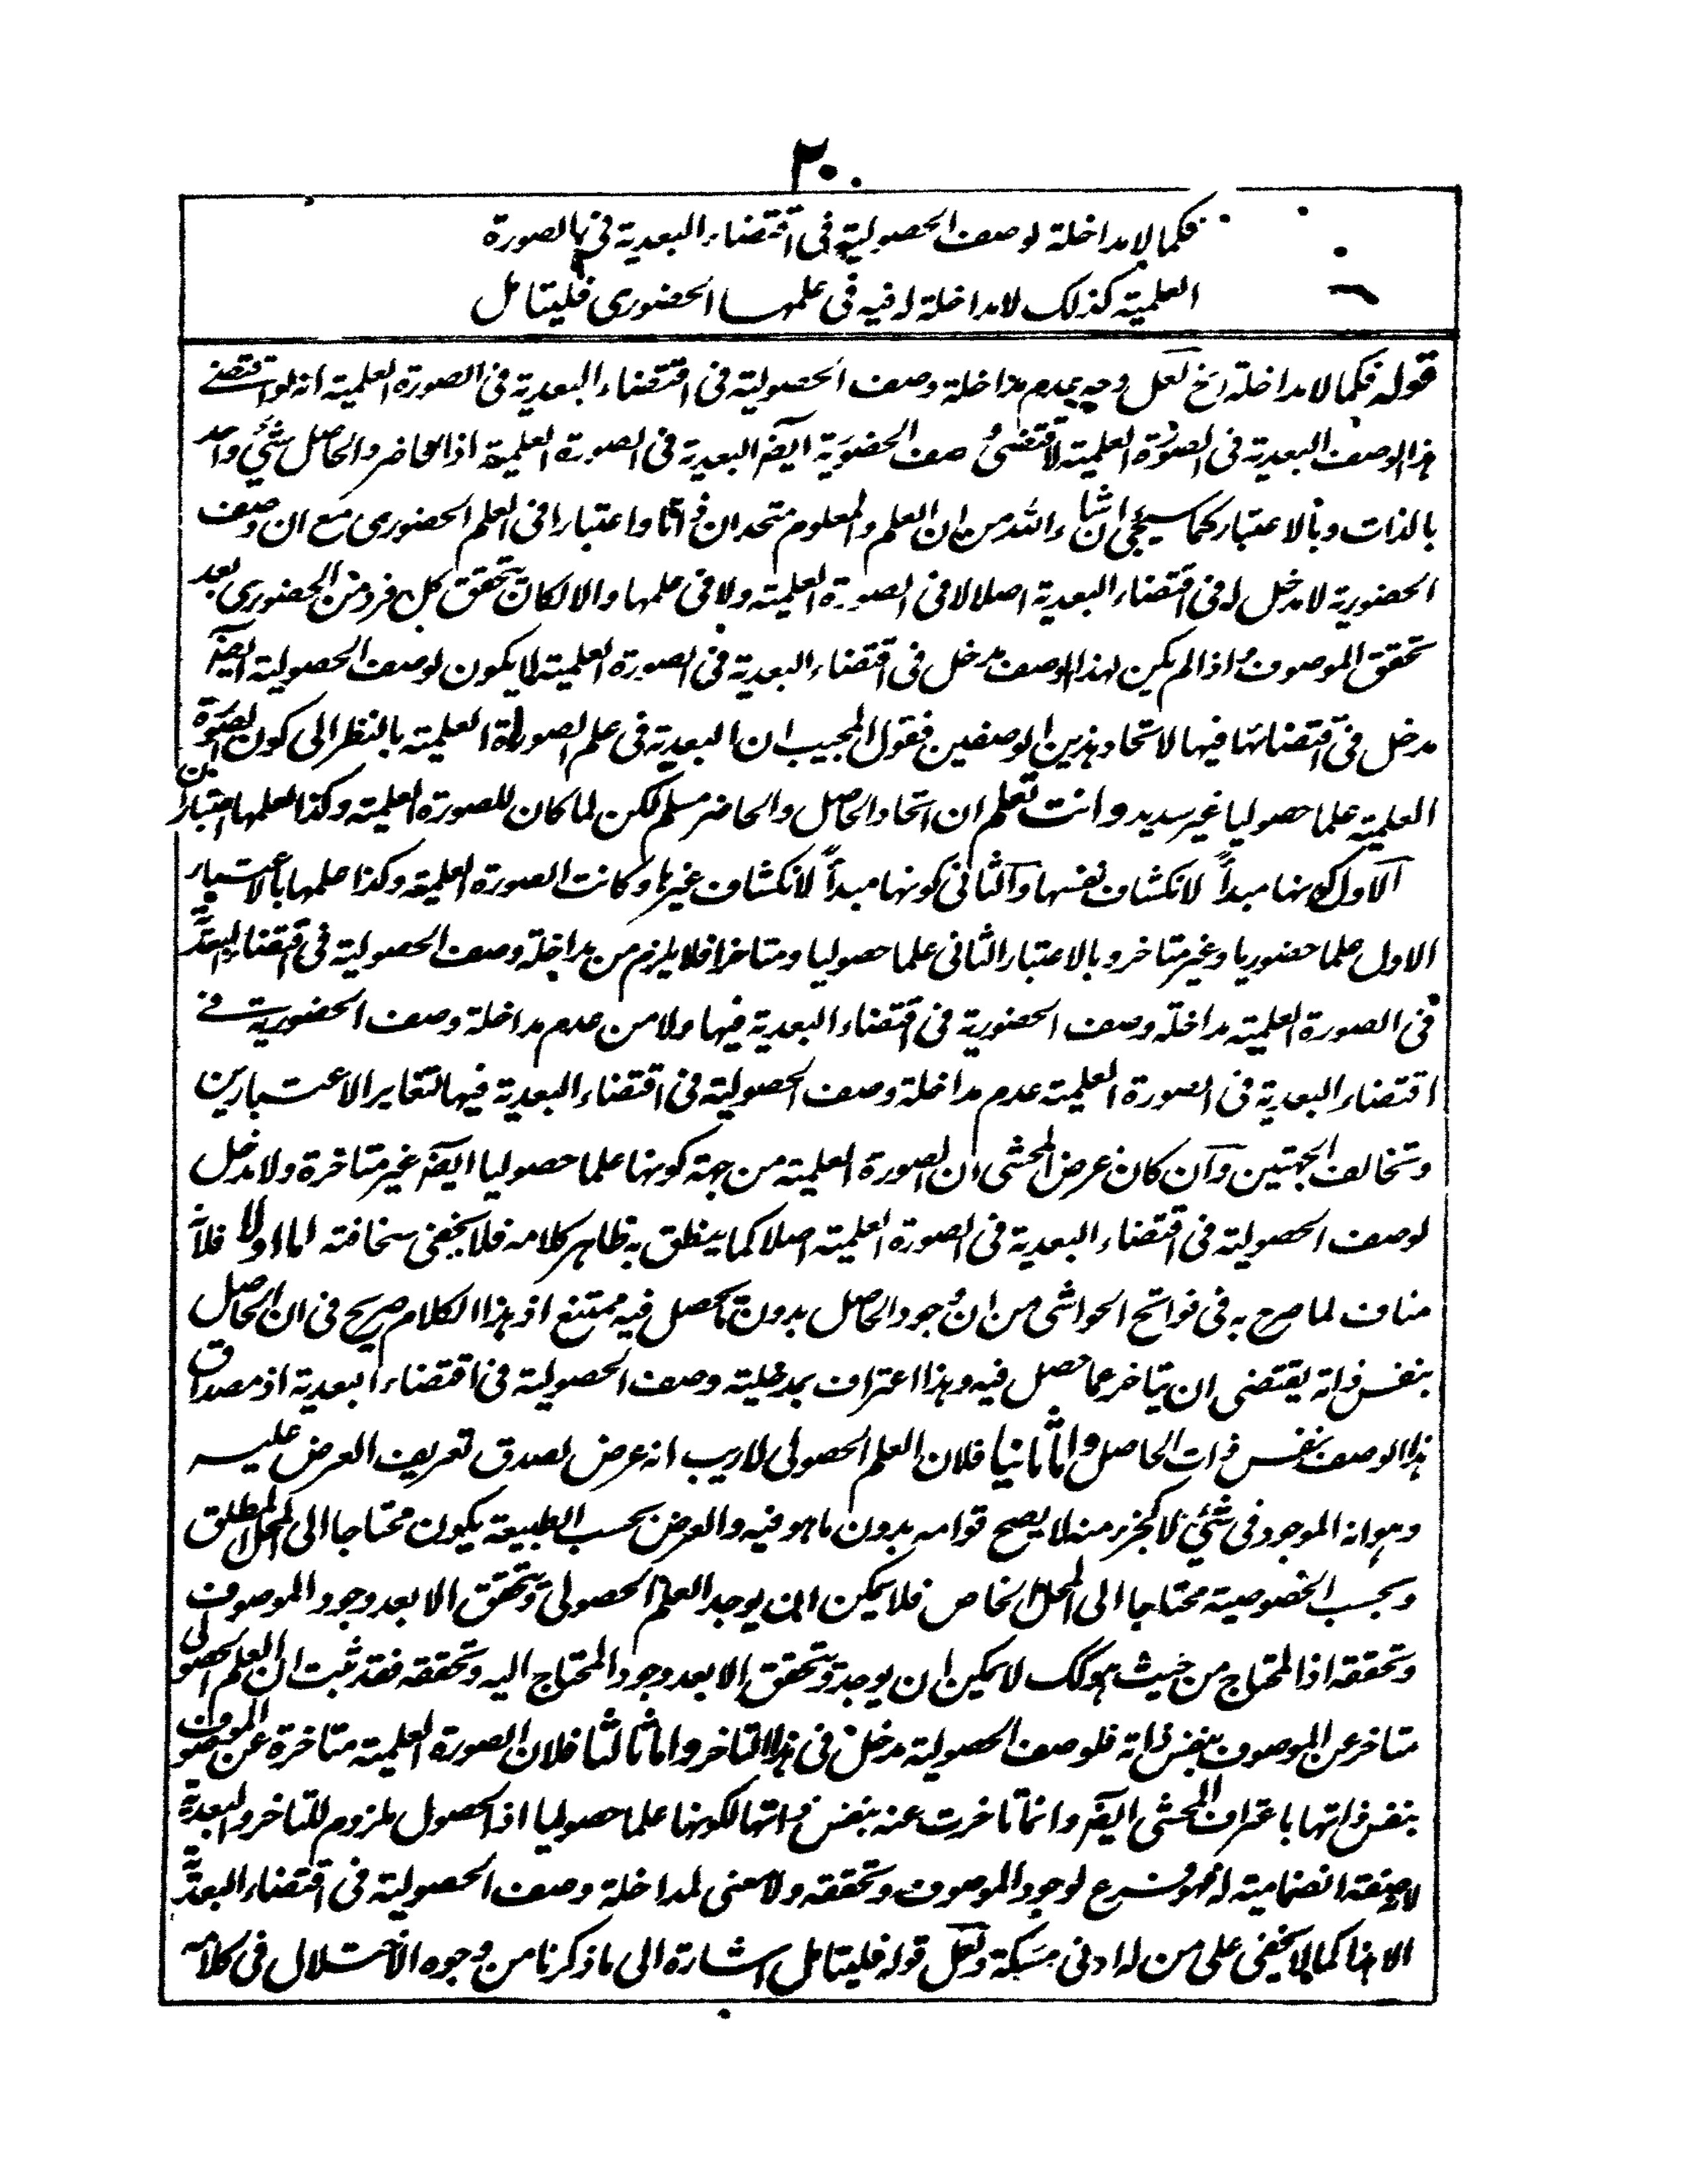 ٢٠
فكما لا مداخلة لوصف الحصولية فى اقتضاء البعدية فى الصورة
العلمية كذلك لا مداخلة له فيه فى علمها الحضورى فليتامل
قوله فكما لا مداخلة الخ لعل وجه عدم مداخلة وصف الحصولية فى اقتضاء البعدية فى الصورة العلمية انه لو اقتضى
هذا الوصف البعدية فى الصورة العلمية لاقتضى وصف الحضورية ايضا البعدية فى الصورة العلمية اذ الحاضر والحاصل شئ واحد
بالذات وبالاعتبار كما سيجئ ان شاء الله من ان العلم والمعلوم متحدان ذاتا واعتبارا فى العلم الحضورى مع ان وصف
الحضورية لا مدخل له فى اقتضاء البعدية اصلا لا فى الصورة العلمية ولا فى علمها والا لكان تحقق كل فرد من الحضورى بعد
تحقق الموصوف واذا لم يكن لهذا الوصف مدخل فى اقتضاء البعدية فى الصورة العلمية لا يكون لوصف الحصولية ايضا
مدخل فى اقتضائها فيها لاتحاد هذين الوصفين فقول المجيب ان البعدية فى علم الصورة العلمية بالنظر الى كون الصورة
العلمية علما حصوليا غير سديد وانت تعلم ان اتحاد الحاصل والحاضر مسلم لكن لما كان للصورة العلمية وكذا لعلمها اعتباران
الاول كونها مبدأ لانكشاف نفسها والثانى كونها مبدأ لانكشاف غيرها وكانت الصورة العلمية وكذا علمها بالاعتبار
الاول علما حضوريا وغير متاخر وبالاعتبار الثانى علما حصوليا ومتاخرا فلا يلزم من مداخلة وصف الحصولية فى اقتضاء البعدية
فى الصورة العلمية مداخلة وصف الحضورية فى اقتضاء البعدية فيها ولا من عدم مداخلة وصف الحضورية فى
اقتضاء البعدية فى الصورة العلمية عدم مداخلة وصف الحصولية فى اقتضاء البعدية فيها لتغاير الاعتبارين
وتخالف الجهتين وان كان غرض المحشى ان الصورة العلمية من جهة كونها علما حصوليا ايضا غير متاخرة ولا مدخل
لوصف الحصولية فى اقتضاء البعدية فى الصورة العلمية اصلا كما ينطق به ظاهر كلامه فلا يخفى سخافته اما اولا فلانه
مناف لما صرح به فى فواتح الحواشى من ان وجود الحاصل بدون ما يحصل فيه ممتنع اذ هذا الكلام صريح فى ان الحاصل
بنفس ذاته يقتضى ان يتاخر عما حصل فيه وهذا اعتراف بمدخلية وصف الحصولية فى اقتضاء البعدية اذ مصداق
هذا الوصف نفس ذات الحاصل واما ثانيا فلان العلم الحصولى لا ريب انه عرض لصدق تعريف العرض عليه
وهو انه الموجود فى شئ لا كجزء منه لا يصح قوامه بدون ما هو فيه والعرض بحسب الطبيعة يكون محتاجا الى المحل المطلق
وبحسب الخصوصية محتاجا الى المحل الخاص فلا يمكن ان يوجد العلم الحصولى وتحقق الا بعد وجود الموصوف
وتحققه اذ المحتاج من حيث هو كك لا يمكن ان يوجد وتحقق الا بعد وجود المحتاج اليه وتحققه فقد ثبت ان العلم الحصولى
متاخر عن الموصوف بنفس ذاته فلوصف الحصولية مدخل فى هذا التاخر واما ثالثا فلان الصورة العلمية متاخرة عن الموصوف
بنفس ذاتها باعتراف المحشى ايضا وانما تاخرت عنه بنفس ذاتها لكونها علما حصوليا اذ الحصول ملزوم للتاخر والبعدية
لانه صفة انضمامية له فهو فرع لوجود الموصوف وتحققه ولا معنى لمداخلة وصف الحصولية فى اقتضاء البعدية
الا هذا كما لا يخفى على من له ادنى مسكة ولعل قوله فليتامل اشارة الى ما ذكرنا من وجوه الاختلال فى كلامه